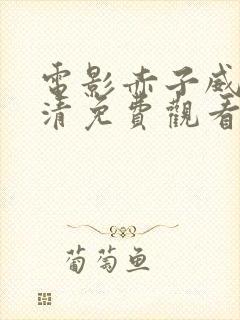 電影赤子威
清免費觀看
葡萄鱼